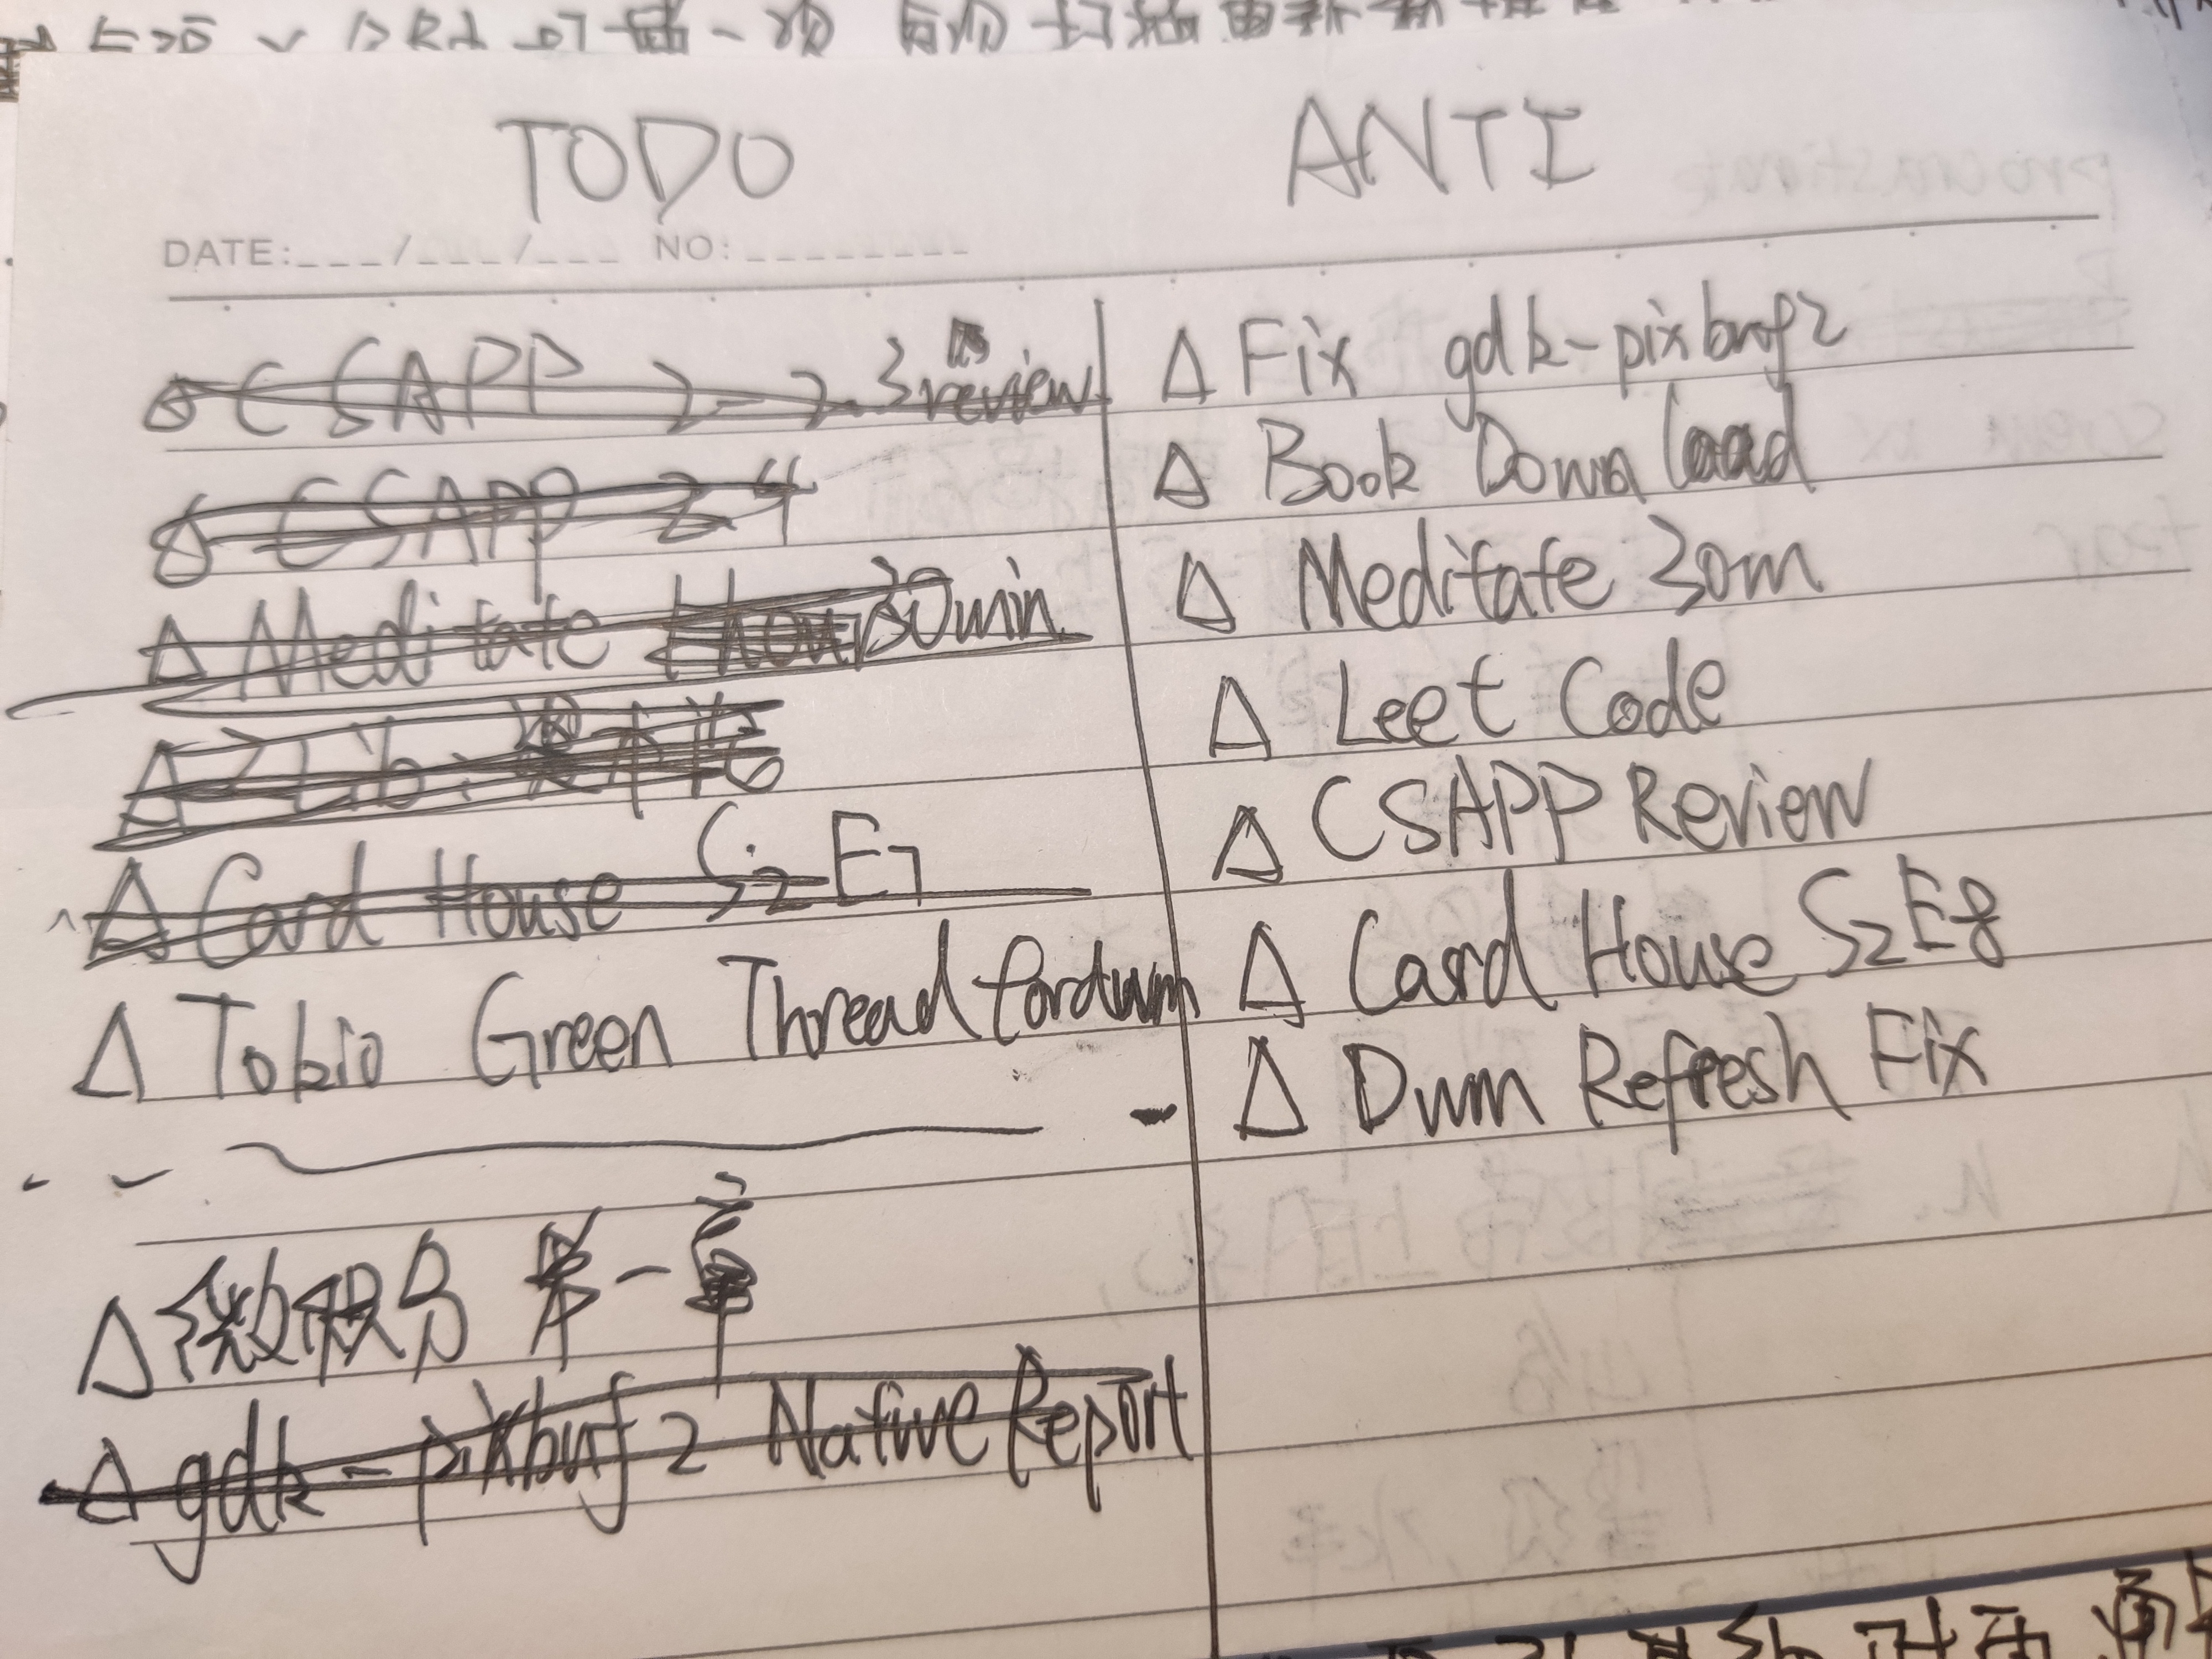 TODO
ANTI
DATE:___/___/___ NO:_________
CSAPP 2-2.3 review
CSAPP 2.4
Δ Meditate 1 hour 30min
Δ ZLib:
Δ Card House S2 E7
Δ Tokio Green Thread for dwm
Δ 微积分 第一章
Δ gdk-pixbuf2 Native Report
Δ Fix gdk-pixbuf2
Δ Book Download
Δ Meditate 30m
Δ Leet Code
Δ CSAPP Review
Δ Card House S2 E8
Δ Dwm Refresh Fix